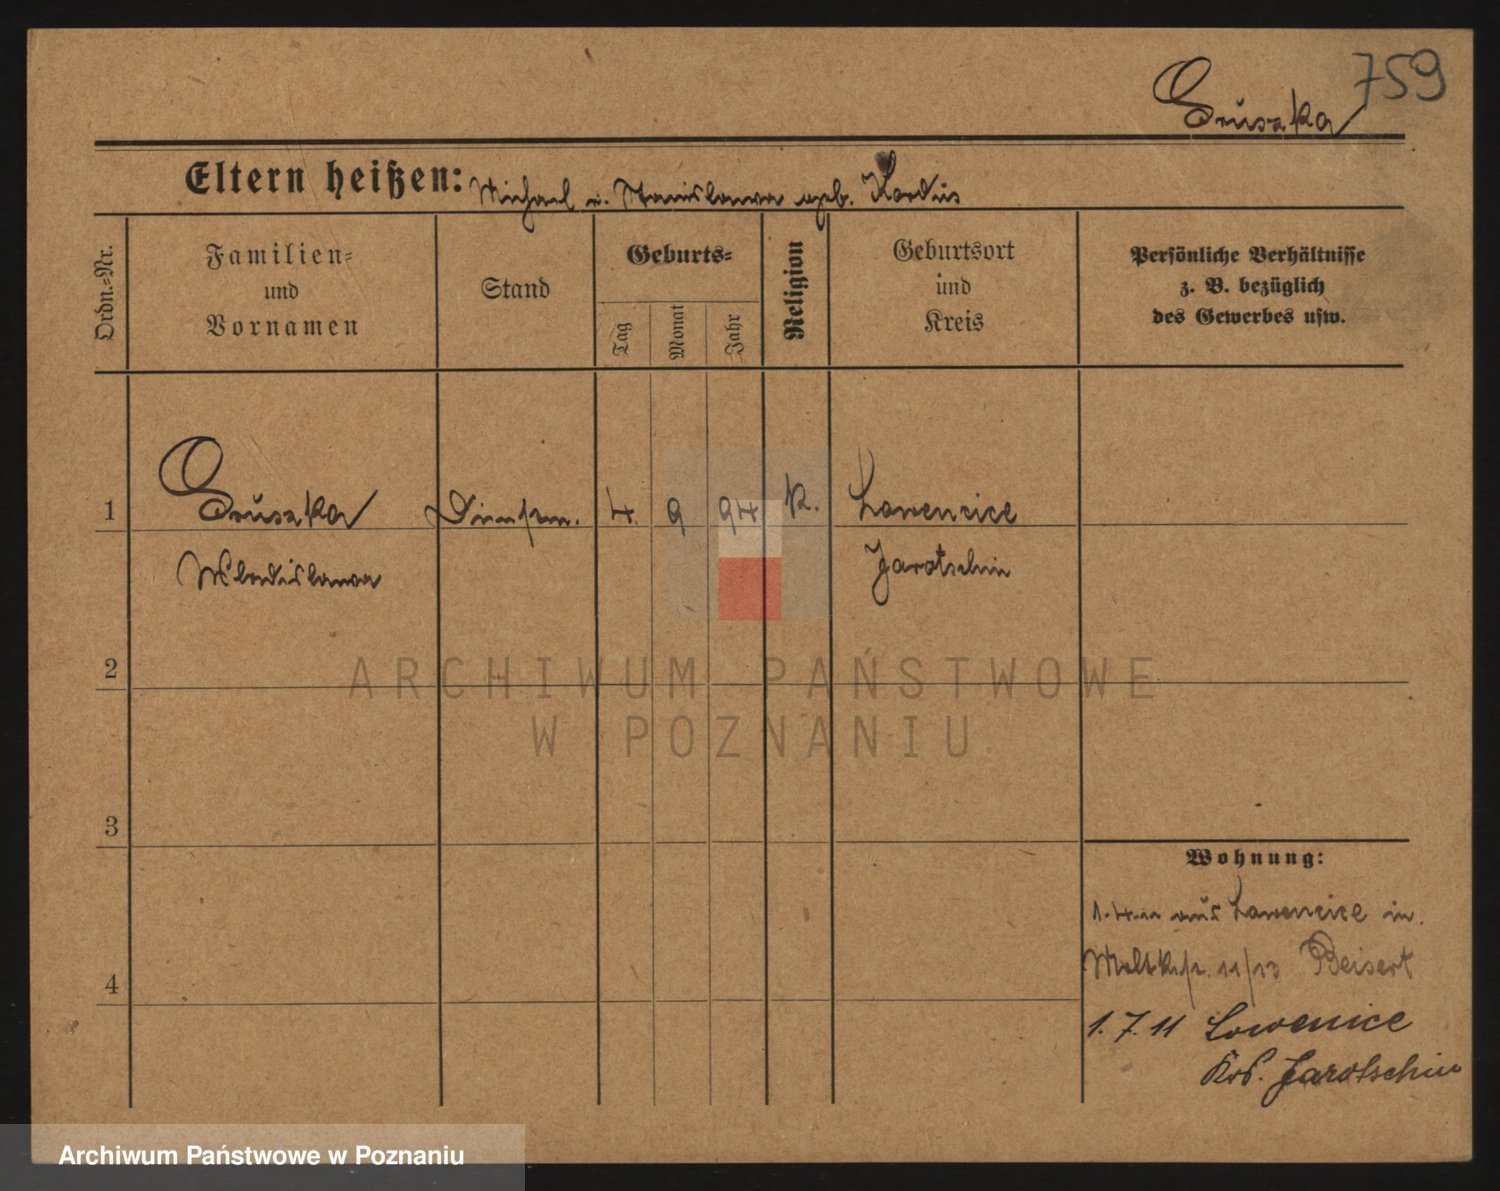 759
Gruszka
Eltern heißen: Michael u. Stanislawa geb. Kordus
Ordn.-Nr.
Familien-
und
Vornamen
Stand
Geburts-
Tag
Monat
Jahr
Religion
Geburtsort
und
Kreis
Persönliche Verhältnisse
z. B. bezüglich
des Gewerbes usw.
1 Gruszka 4. 9 94 k. Lowencice
Wladislawa Jarotschin
2
3
4
Wohnung:
1.4.11 aus Lowencice in.
Moltkestr. 11/13 Beisert
1.7.11 Lowenice
Krs. Jarotschin
ARCHIWUM PAŃSTWOWE
W POZNANIU
Archiwum Państwowe w Poznaniu